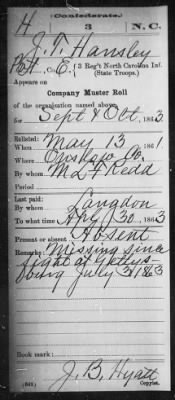 Confederate.
H 3 N.C.
J. T. Hansley
Pvt, Co. E, 3 Reg't North Carolina Inf.
(State Troops.)
Appears on
Company Muster Roll
of the organization named above,
for Sept & Oct, 1863
Enlisted:
When May 13 1861
Where Onslow Co.
By whom M. L. F. Redd
Period
Last paid:
By whom Langdon
To what time Apl 30, 1863
Present or absent Absent
Remarks: Missing since
fight at Gettys-
burg July 3/1863
Book mark:
J. B. Hyatt
Copyist.